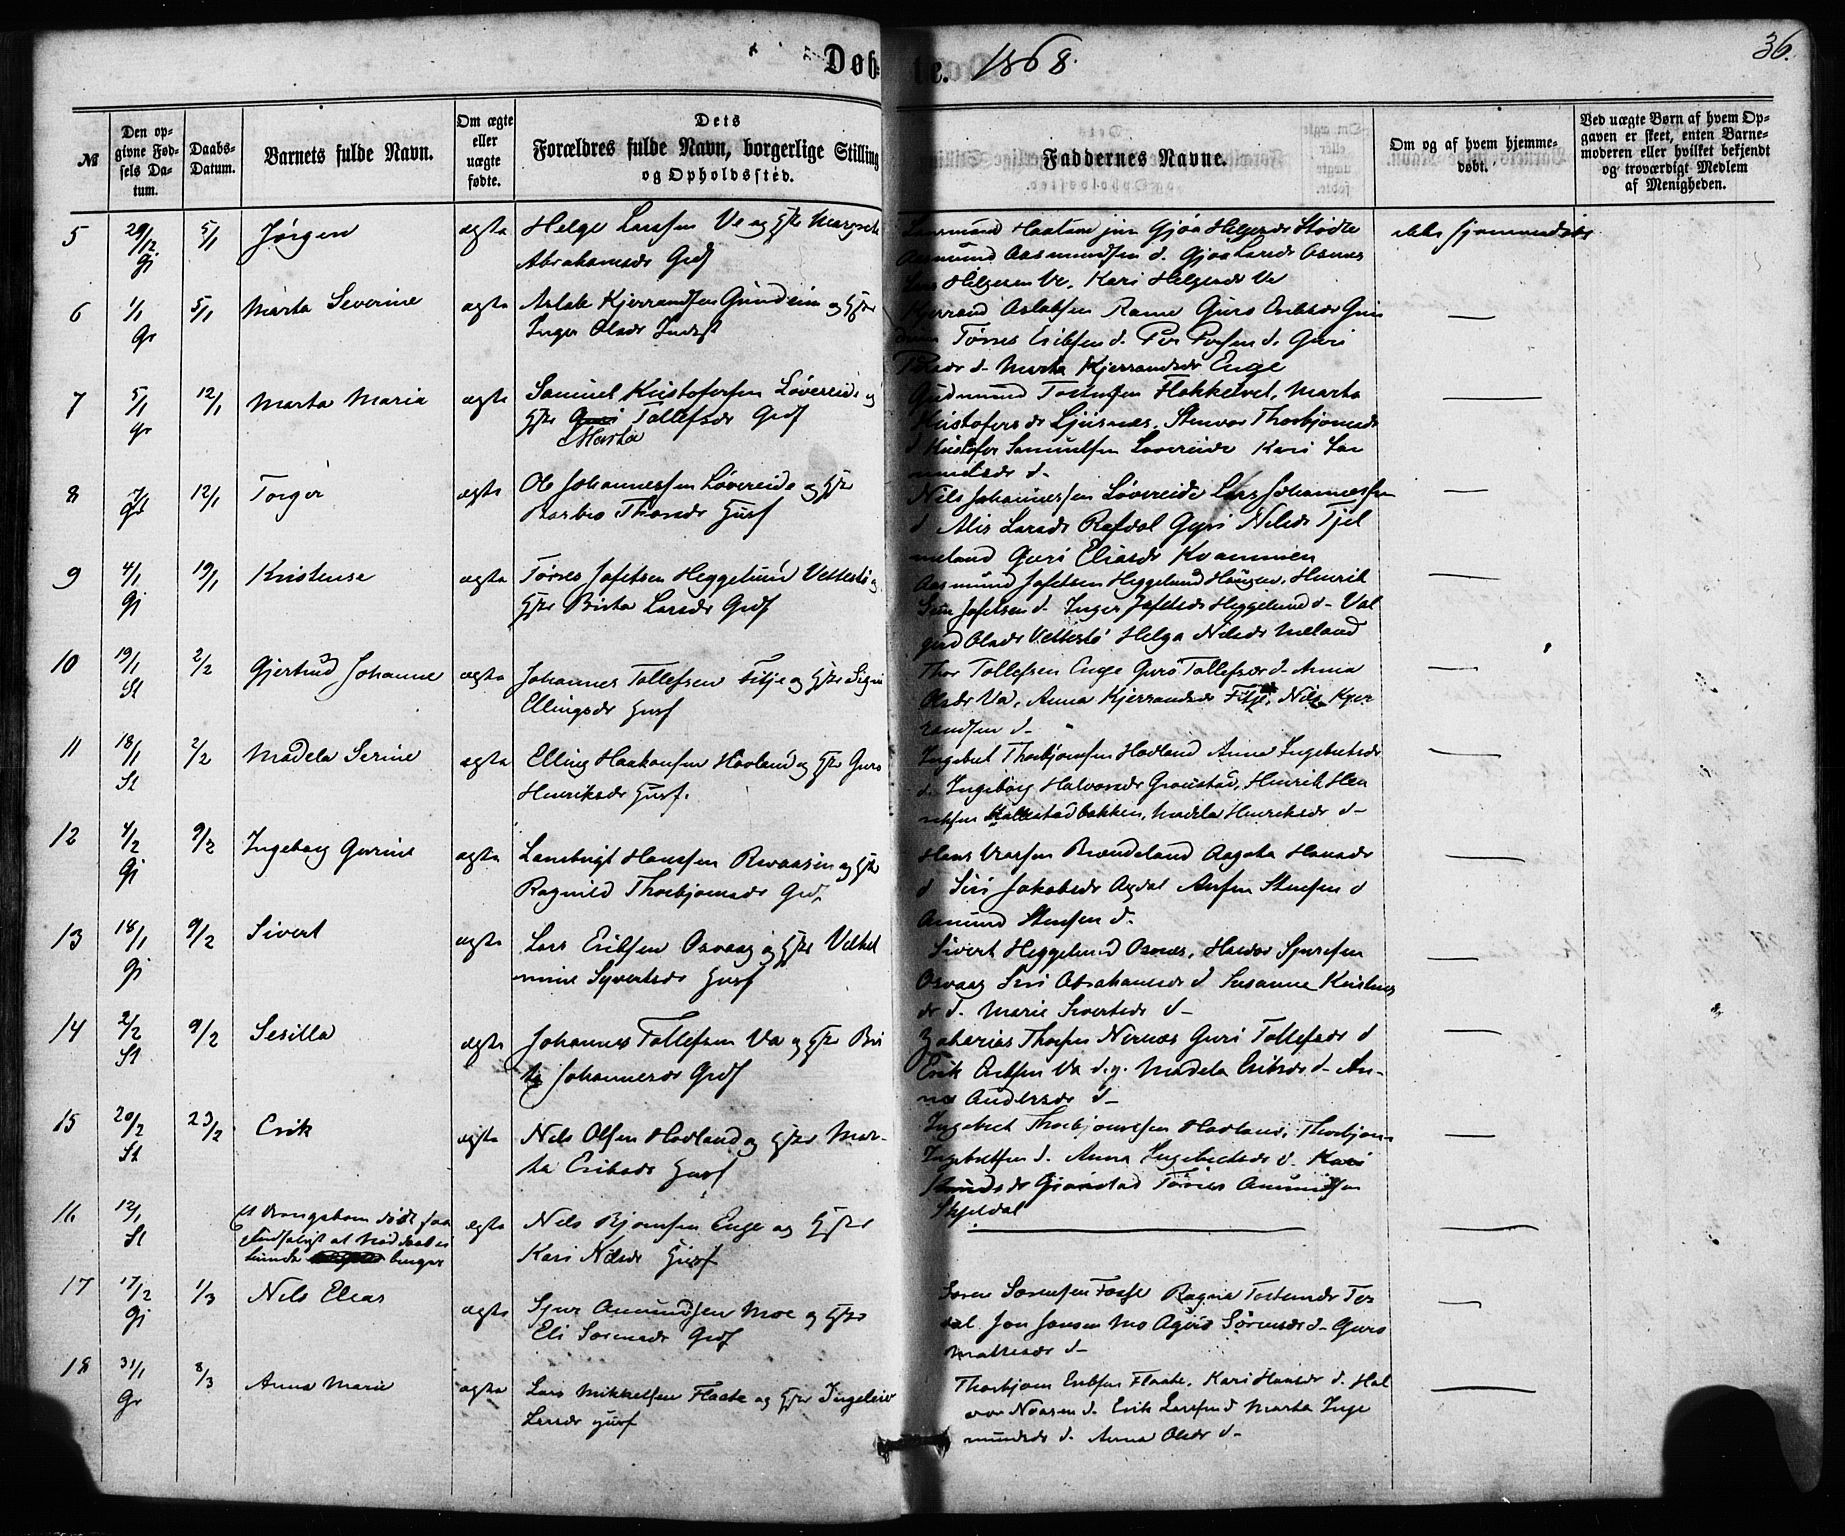 Døbte. 1868.
36.
№
Den opgivne Fødsels Datum.
Daabs-Datum.
Barnets fulde Navn.
Om ægte eller uægte fødte.
Dets Forældres fulde Navn, borgerlige Stilling og Opholdssted.
Faddernes Navne.
Om og af hvem hjemmedøbt.
Ved uægte Børn af hvem Opgaven er skeet, enten Barnemoderen eller hvilket bekjendt og troværdigt Medlem af Menigheden.
5 29/12 Gj 5/1 Jørgen ægte Helge Larssen Ve og Hst Margrete
Abrahamsdr Grdf
Gjøa Helgesdr
Aasmund Aasmundsen d. Gjøa Larsdr Osnes
Lars Helgesen Ve, Kari Helgesdr Ve
ikke hjemmedøbt
6 1/1 Gr 5/1 Marta Severine ægte Aslak Kjerrandsen Gundeim og Hst
Inger Olsdr Inderst
Kjerrand Aslaksen Rame Guro Eriksdr
Tørres Eriksen d. Per d. Guri
d- Marta Kjerrandsdr Enge
7 5/1 Gr 12/1 Marta Maria ægte Samuel Kristofersen Løvereide og
Hst Guri Tollefsdr Grdf
Marta
Gudmund Tostensen Flokketvet, Marta
Kristofersdr Thorbjørnsdr
d Kristofer Samuelsen Løvereide Kari Sa
muelsdr d-
8 7/1 Gr 12/1 Torger ægte Ole Johannessen Løvereide og Hst
Barbro Husf
Nils Johannessen Løvereide Lars Johannessen
d Larsdr Rafdal Guri Nilsdr Tjel
meland Guri Eliasdr Kvammen
9 4/1 Gj 19/1 Kristense ægte Tørres Jofetsen Heggelund Vettestø og
Hst Birta Larsdr Grdf
Aasmund Jofetsen Heggelund Haugen, Henrik
Jofetsen d. Inger Jofetsdr Heggelund d- Val
gerd Olsdr Vettestø Helga Nilsdr Meland
10 19/1 St 2/2 Gjertrud Johanne ægte Johannes Tollefsen Fitje og Hst Signi
Ellingsdr Husf
Thor Tollefsen Enge Guro Tollefsdr d- Anna
Olsdr Va, Anna Kjerrandsdr Fitje, Nils Kjer
randsen d-
11 18/1 St 2/2 Madela Serine ægte Elling Haakonsen Hovland og Hst Guro
Henriksdr Husf.
Ingebret Thorbjønsen Hovland Anna Ingebretsdr
d. Ingeborg Halvorsdr Grønstad, Henrik Hen
riksen bakken, Madela Henriksdr d-
12 4/2 Gj 9/2 Ingeborg Gurine ægte Lambrigt Hanssen og Hst
Ragnild Thorbjørnsdr Grdf
Hans Brandeland Aagota Hansdr
d Siri Jakobsdr Agdal Stensen d
Amund Stensen d.
13 18/1 Gj 9/2 Sivert ægte Lars Eriksen Osvaag og Hst Vilhel
mine Syvertsdr Husf
Sivert Heggelund Osnes, Haldor Sjursen
Osvaag Siri Abrahamsdr d Susanne
dr d. Marie Sivertsdr d-
14 2/2 St 9/2 Sesilla ægte Johannes Tollefsen Va og Hst Bri
ta Johannesdr Grdf
Zakarias Thorsen Nernes Guri Tollefsdr d
Erik Eriksen Va d.y. Madela Eriksdr d- An-
na Andersdr d-
15 20/2 St 23/2 Erik ægte Nils Olsen Hovland og Hst Mar-
ta Eriksdr Husf
Ingebret Thorbjønsen Hovland, Thorbjøn
Ingebretsen d. Anna Ingebretsdr d. Kari
Grønstad Tørres Amundsen
Skjeldal
16 12/1 St Et Drengebarn død faa
at Nøddaab ei
kunde bruges
ægte Nils Bjørnsen Enge og Hst
Kari Nilsdr Husf
17 17/2 Gj 1/3 Nils Elias ægte Sjur Amundsen Moe og Hst
Eli Sørensdr Grdf
Søren Sørensen Fosse Ragna Tostensdr Tes
dal Jon Jonsen Mo Sørensdr d- Guro
d-
18 31/1 Gr 8/3 Anna Marie ægte Lars Mikkelsen Flaate og Hst Ingeleiv
Larsdr Husf
Thorbjørn Eriksen Flaate, Kari Hansdr d. Hal
vor d. Erik Larssen d Marta Inge
mundsdr d. Anna Olsdr d-